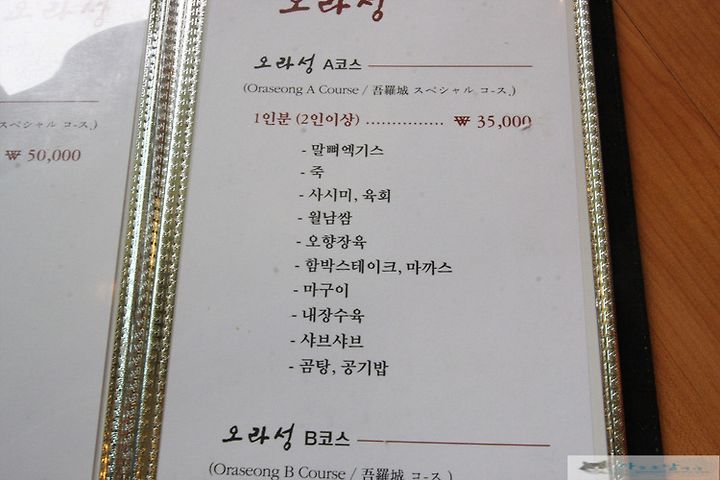 오라성
오라성 A코스
(Oraseong A Course / 吾羅城 スペシャル コ-ス.)
1인분 (2인이상) ............... ₩ 35,000
- 말뼈엑기스
- 죽
- 사시미, 육회
- 월남쌈
- 오향장육
- 함박스테이크, 마까스
- 마구이
- 내장수육
- 샤브샤브
- 곰탕, 공기밥
오라성 B코스
(Oraseong B Course / 吾羅城 コ-ス.)
スペシャル コ-ス.)
₩ 50,000